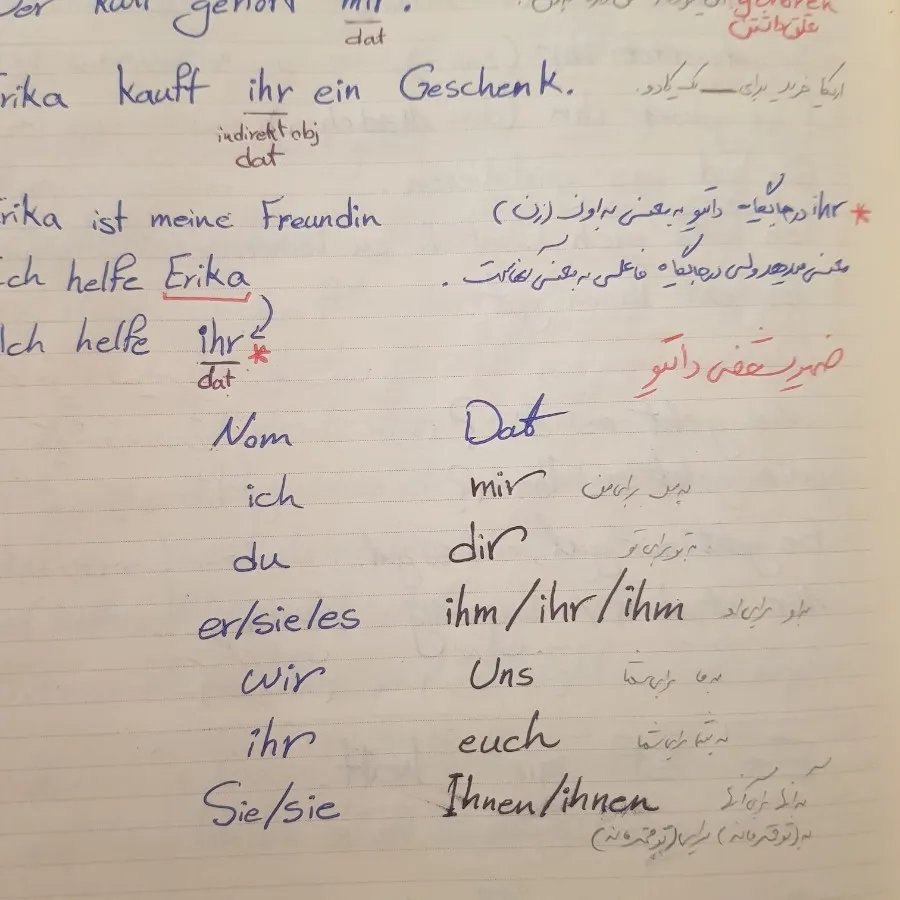 kauft gehört mir.
dat
gehören
تعلق داشتن
rika kauft ihr ein Geschenk.
اریکا خرید برای ـــ یک کادو.
indirekt obj
dat
rika ist meine Freundin
* ihr در جایگاه داتیو به معنی به اون (زن)
ch helfe Erika
معنی میدهد ولی در جایگاه فاعلی به معنی
Ich helfe ihr *
dat
ضمیر شخصی داتیو
Nom Dat
ich mir به من برای من
du dir به تو برای تو
er/sie/es ihm/ihr/ihm به او برای او
wir Uns به ما برای شما
ihr euch به شما برای شما
Sie/sie Ihnen/ihnen به آنها برای آنها